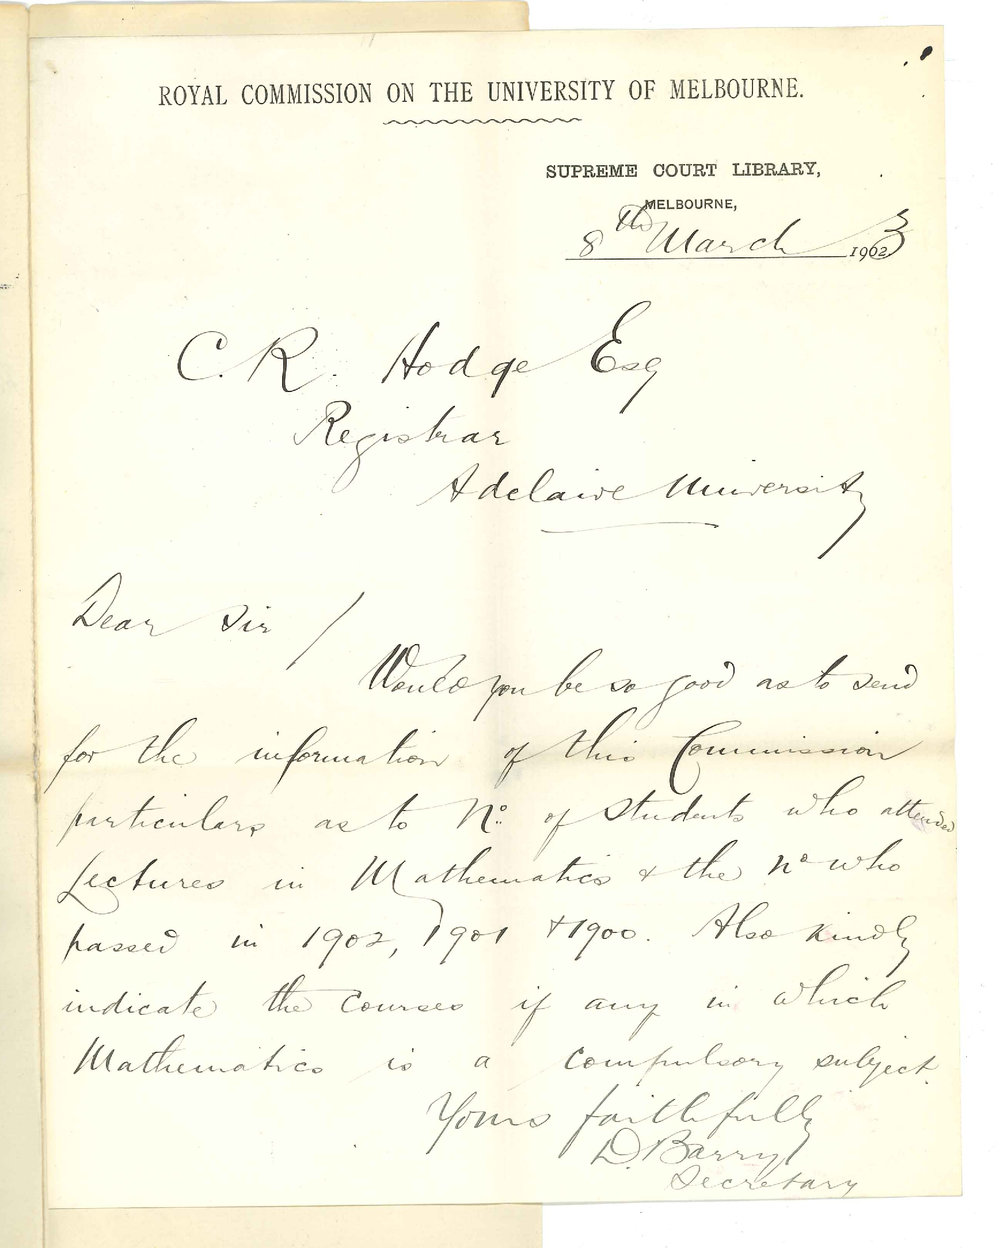 ROYAL COMMISSION ON THE UNIVERSITY OF MELBOURNE.
SUPREME COURT LIBRARY,
MELBOURNE,
8th March 1903
C. R. Hodge Esq
Registrar
Adelaide University
Dear Sir /
Would you be so good as to send
for the information of this Commission
particulars as to No. of Students who attended
Lectures in Mathematics & the No who
passed in 1902, 1901 & 1900. Also kindly
indicate the courses if any in which
Mathematics is a compulsory subject.
Yours faithfully
D. Barry
Secretary